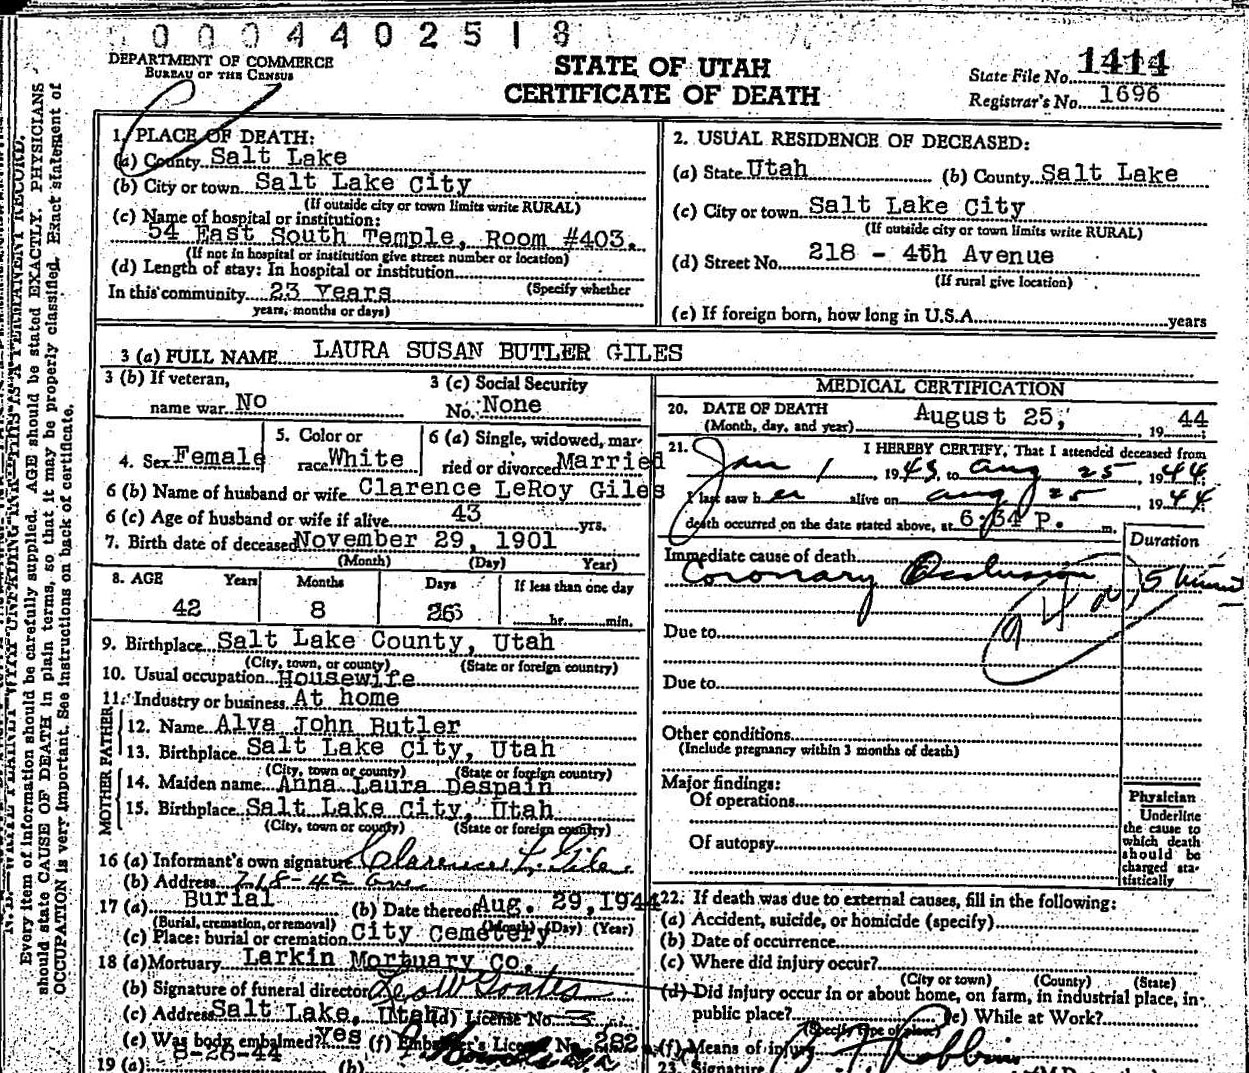 0004402518
DEPARTMENT OF COMMERCE
BUREAU OF THE CENSUS
STATE OF UTAH
CERTIFICATE OF DEATH
State File No. 1414
Registrar's No. 1696
Every item of information should be carefully supplied. AGE should be stated EXACTLY. PHYSICIANS
should state CAUSE OF DEATH in plain terms, so that it may be properly classified. Exact statement of
OCCUPATION is very important. See instructions on back of certificate.
1. PLACE OF DEATH:
(a) County Salt Lake
(b) City or town Salt Lake City
(If outside city or town limits write RURAL)
(c) Name of hospital or institution:
54 East South Temple, Room #403.
(If not in hospital or institution give street number or location)
(d) Length of stay: In hospital or institution
(Specify whether
In this community 23 years
years, months or days)
2. USUAL RESIDENCE OF DECEASED:
(a) State Utah (b) County Salt Lake
(c) City or town Salt Lake City
(If outside city or town limits write RURAL)
(d) Street No. 218 - 4th Avenue
(If rural give location)
(e) If foreign born, how long in U.S.A. years
3 (a) FULL NAME LAURA SUSAN BUTLER GILES
3 (b) If veteran,
name war No
3 (c) Social Security
No. None
4. Sex Female
5. Color or
race White
6 (a) Single, widowed, mar-
ried or divorced Married
6 (b) Name of husband or wife Clarence LeRoy Giles
6 (c) Age of husband or wife if alive 43 yrs.
7. Birth date of deceased November 29, 1901
(Month) (Day) Year)
8. AGE Years Months Days If less than one day
42 8 26 hr. min.
9. Birthplace Salt Lake County, Utah
(City, town, or county) (State or foreign country)
10. Usual occupation Housewife
11. Industry or business At home
FATHER
12. Name Alva John Butler
13. Birthplace Salt Lake City, Utah
(City, town or county) (State or foreign country)
MOTHER
14. Maiden name Anna Laura Despain
15. Birthplace Salt Lake City, Utah
(City, town or county) (State or foreign country)
16 (a) Informant's own signature Clarence L. Giles
(b) Address 218-4th Ave
17 (a) Burial (b) Date thereof Aug. 29, 1944
(Burial, cremation, or removal) (Month) (Day) (Year)
(c) Place: burial or cremation City Cemetery
18 (a) Mortuary Larkin Mortuary Co.
(b) Signature of funeral director
(c) Address Salt Lake, Utah (d) License No. 3
(e) Was body embalmed? Yes (f) Embalmer's License No. 282
19 (a) 8-28-44 (b)
MEDICAL CERTIFICATION
20. DATE OF DEATH August 25, 1944
(Month, day, and year)
21. I HEREBY CERTIFY, That I attended deceased from
Jan 1, 1943, to Aug 25, 1944
I last saw her alive on Aug 25, 1944
death occurred on the date stated above, at 6:34 P. m.
Duration
Immediate cause of death
Coronary Occlusion 5 min
94 a
Due to
Due to
Other conditions
(Include pregnancy within 3 months of death)
Major findings:
Of operations
Of autopsy
Physician
Underline
the cause to
which death
should be
charged sta-
tistically
22. If death was due to external causes, fill in the following:
(a) Accident, suicide, or homicide (specify)
(b) Date of occurrence
(c) Where did injury occur?
(City or town) (County) (State)
(d) Did injury occur in or about home, on farm, in industrial place, in
public place? (e) While at Work?
(Specify type of place)
(f) Means of injury
23. Signature Robbins